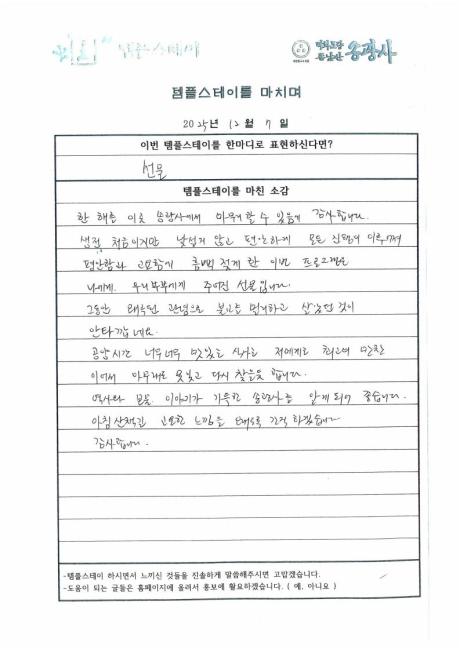 템플스테이
종남산 송광사
템플스테이를 마치며
2025년 12월 7일
이번 템플스테이를 한마디로 표현하신다면?
선물
템플스테이를 마친 소감
한 해를 이곳 송광사에서 마무리할 수 있음에 감사합니다.
생전 처음이지만 낯설지 않고 편안하게 모든 진행이 이루어져
편안함과 고요함에 흠뻑 젖게 한 이번 프로그램은
나에게, 우리부부에게 주어진 선물입니다.
그동안 왜곡된 관념으로 불교를 멀리하고 살았던 것이
안타깝네요.
공양시간 너무너무 맛있는 식사로 저에게는 최고의 만찬
이어서 아무래도 못잊고 다시 찾을듯 합니다.
역사와 보물 이야기가 가득한 송광사를 알게 되어 좋습니다.
아침산책길 고요한 느낌을 오래도록 간직 하겠습니다
감사합니다.
-템플스테이 하시면서 느끼신 것들을 진솔하게 말씀해주시면 고맙겠습니다.
-도움이 되는 글들은 홈페이지에 올려서 홍보에 활요하겠습니다. ( 예, 아니요 )